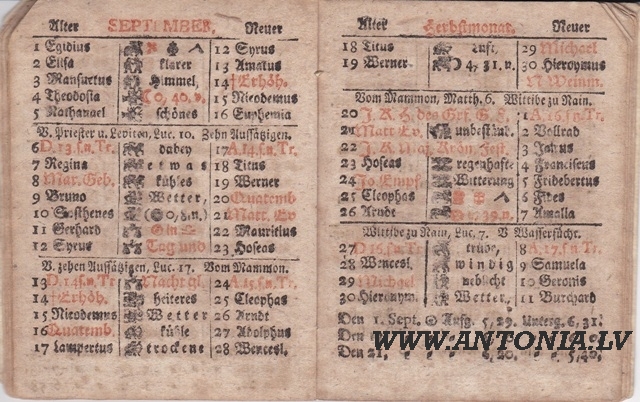 Alter SEPTEMBER. Neuer
1 Egidius 12 Syrus
2 Elisa klarer 13 Amatus
3 Mansuetus Himmel, 14 †Erhöh.
4 Theodosia 0, 40, v. 15 Nicodemus
5 Nathanael schönes 16 Euphemia
V. Priester u. Leviten, Luc. 10. Zehn Aussätzigen.
6 D. 13. s. n. Tr. dabey 17 A. 14. s. n. Tr.
7 Regina etwas 18 Titus
8 Mar. Geb. kühles 19 Werner
9 Bruno Wetter, 20 Quatemb
10 Sosthenes 21 Matt. Ev
11 Gerhard 22 Mauritius
12 Syrus Tag und 23 Hoseas
V. zehen Aussätzigen, Luc. 17. Vom Mammon.
13 D. 14. s. n. Tr. Nacht gl. 24 A. 15. s. n. Tr.
14 †Erhöh. heiteres 25 Cleophas
15 Nicodemus Wetter 26 Arndt
16 Quatemb. kühle 27 Adolphus
17 Lampertus trockene 28 Wencesl.
Alter Herbstmonat. Neuer
18 Titus Luft, 29 Michael
19 Werner 4, 31, v. 30 Hieronymus
Vom Mammon, Matth. 6. Wittibe zu Nain.
20 J. K. H. des Gr. G. F. 1 A. 16. s. n. Tr.
21 Matt Ev. unbeständ. 2 Vollrad
22 J. K. Maj. Krön. Fest. 3 Jairus
23 Hoseas regenhafte 4 Franciscus
24 Jo. Empf. Witterung 5 Fridebertus
25 Cleophas 6 Fides
26 Arndt 5, 39, n. 7 Amalia
Wittibe zu Nain, Luc. 7. V Wassersücht.
27 D. 16. s. n. Tr. trüber, 8 A. 17. s. n. Tr.
28 Wencesl. windig 9 Samuela
29 Michael neblicht 10 Gereonis
30 Hieronym. Wetter, 11 Burchard
Den 1. Sept. Aufg. 5, 29. Unterg. 6, 31.
Den
Den 21. 6, 20. 5, 40.
WWW.ANTONIA.LV